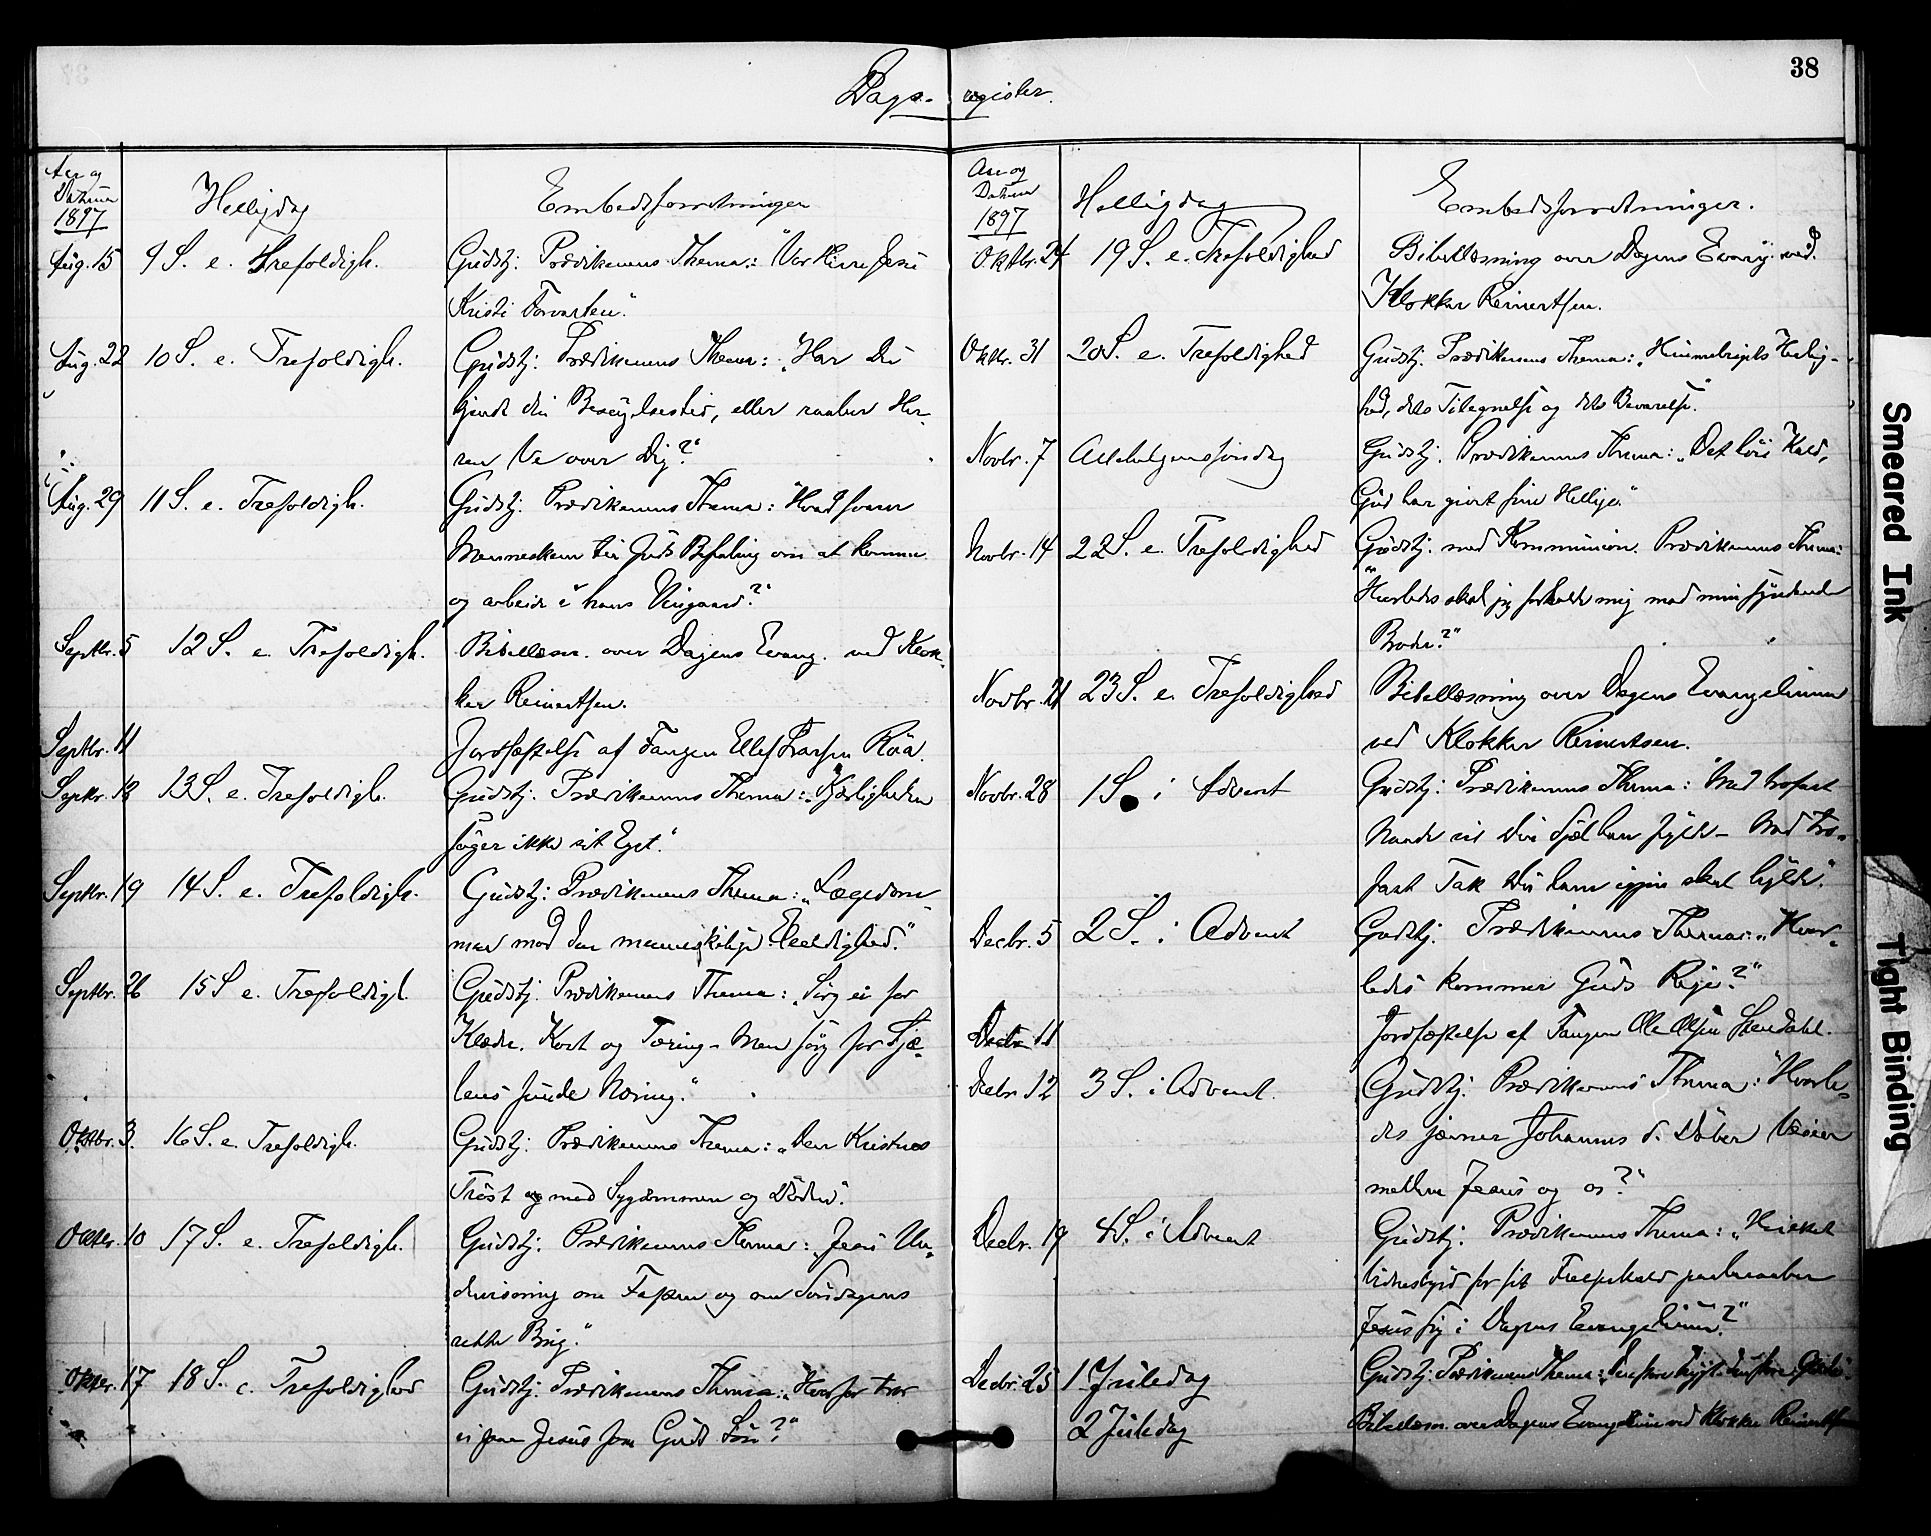 38
Dags- register.
Aar og
Datum
1897
Helligdag
Embedsforretninger
Aug. 15 9 S. e. Trefoldigh. Gudstj: Prædikenens Thema: "Vor Herre Jesu
Kristi Forvarsler."
Aug. 22 10 S. e. Trefoldigh. Gudstj: Prædikenens Thema: "Har Du
kjendt din Besøgelsestid, eller raaber Her-
ren Ve over Dig?"
Aug. 29 11 S. e. Trefoldigh. Gudstj. Prædikenens Thema: "Hvad svarer
Mennesken til Guds Befaling om at komme
og arbeide i hans Vingaard?"
Septbr. 5 12 S. e. Trefoldigh. Bibellæsn. over Dagens Evang. ved Klok-
ker Reinertsen.
Septbr. 11 Jordfæstelse af Fangen Ellef Larsen Röa.
Septbr. 12 13 S. e. Trefoldigh. Gudstj: Prædikenens Thema: "Kjærligheden
søger ikke sit Eget."
Septbr. 19 14 S. e. Trefoldigh. Gudstj: Prædikenens Thema: "Lægedom-
men mod den menneskelige Elendighed."
Septbr. 26 15 S e. Trefoldigh. Gudstj. Prædikenens Thema: "Sørg ei for
Klæder, Kost og Tæring - Men sørg for Sjæ-
lens sunde Næring."
Oktbr. 3. 16 S. e. Trefoldigh. Gudstj. Prædikenens Thema: "Den Kristnes
Trøst mod Sygdommen og Døden."
Oktbr. 10 17 S. e. Trefoldigh. Gudstj: Prædikenens Thema: "Jesu Un-
dervisning om Festen og om Søndagens
rette Brug."
Oktbr. 17 18 S. e. Trefoldighed Gudstj. Prædikenens Thema: "Hvorfor tror
vi paa Jesus som Guds Søn?"
Aar og
Datum
1897
Helligdag
Embedsforretninger.
Oktbr. 24 19 S. e. Trefoldighed Bibellæsning over Dagens Evang: ved
Klokker Reinertsen.
Oktbr. 31 20 S. e. Trefoldighed Gudstj. Prædikenens Thema: "Himmelrigets Herlig-
hed, dets Tilegnelse og dets Bevarelse."
Novbr. 7 Allehelgenssøndag Gudstj. Prædikenens Thema: "Det høie Kald,
Gud har givet sine Hellige."
Novbr. 14 22 S. e. Trefoldighed Gudstj. med Kommunion. Prædikenens Thema:
"Hvorledes skal jeg forholde mig mod min syndende
Broder?"
Novbr. 21 23 S. e. Trefoldighed Bibellæsning over Dagens Evangelium
ved Klokker Reinertsen.
Novbr. 28 1 S. i Advent Gudstj: Prædikenens Thema: "Med trofast
Naade vil din Sjæl han fylde - Med tro-
fast Tak Du ham igjen skal hylde."
Decbr. 5 2 S. i Advent Gudstj. Prædikenens Thema: "Hvor-
ledes kommer Guds Rige?"
Decbr. 11 Jordfæstelse af Fangen Ole Olsen Stendahl.
Decbr. 12 3 S. i Advent. Gudstj. Prædikenens Thema: "Hvorle-
des jævner Johannes d. Døber Veien
mellem Jesus og os?"
Decbr. 19 4 S. i Advent Gudstj: Prædikenens Thema: "Hvilket
Vidnesbyrd for sit Frelserkald paaberaaber
Jesus sig i Dagens Evangelium?"
Decbr. 25 1 Juledag Gudstj: Prædikenens Thema: "Den store Frygt. Den store Glæde."
2 Juledag Bibellæsn. over Dagens Evangelium ved Klokker Reinertsen
Smeared Ink
Tight Binding